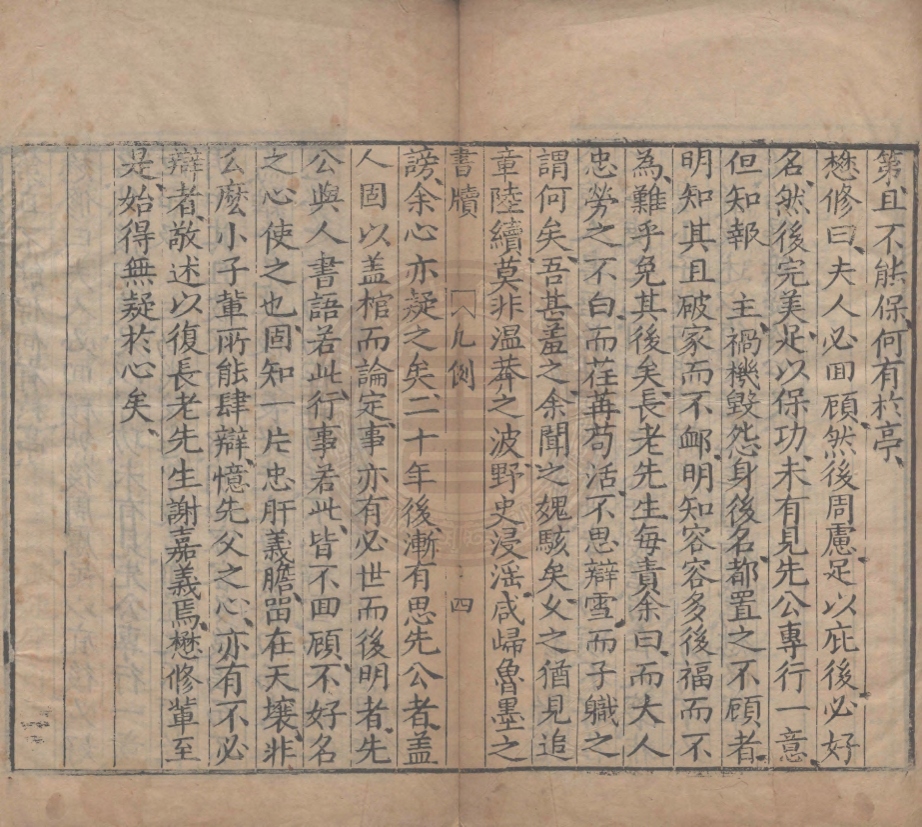 第且不能保何有於亭
懋修曰夫人必回顧然後周慮足以庇後必好
名然後完美足以保功未有見先公專行一意
但知報　主禍機毀怨身後名都置之不顧者
明知其且破家而不䘏明知容容多後福而不
為難乎免其後矣長老先生每責余曰而大人
忠勞之不白而荏苒苟活不思辯雪而子職之
謂何矣吾甚羞之余聞之媿駭矣父之猶見追
章陸續莫非溫莽之波野史浸滛咸歸魯墨之
書牘　凡例　四
謗余心亦疑之矣二十年後漸有思先公者盖
人固以盖棺而論定事亦有必世而後明者先
公與人書語若此行事若此皆不回顧不好名
之心使之也固知一片忠肝義膽畱在天壤非
么麼小子軰所能肆辯憶先父之心亦有不必
辯者敬述以復長老先生謝嘉義焉懋修軰至
是始得無疑於心矣